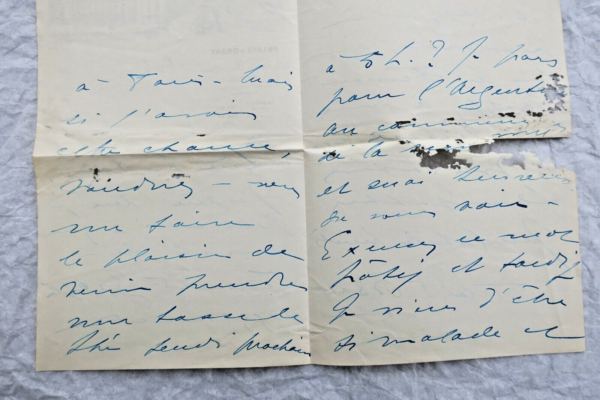 à Paris - Mais
si j'avais
cette chance,
voudriez - vous
me faire
le plaisir de
venir prendre
une tasse de
thé jeudi prochain
à 5 h. ? Je pars
pour l'Argentine
au commence
de la
et serai heureuse
de vous voir -
Excusez ce mot
hâtif et tardif
Je viens d'être
si malade et